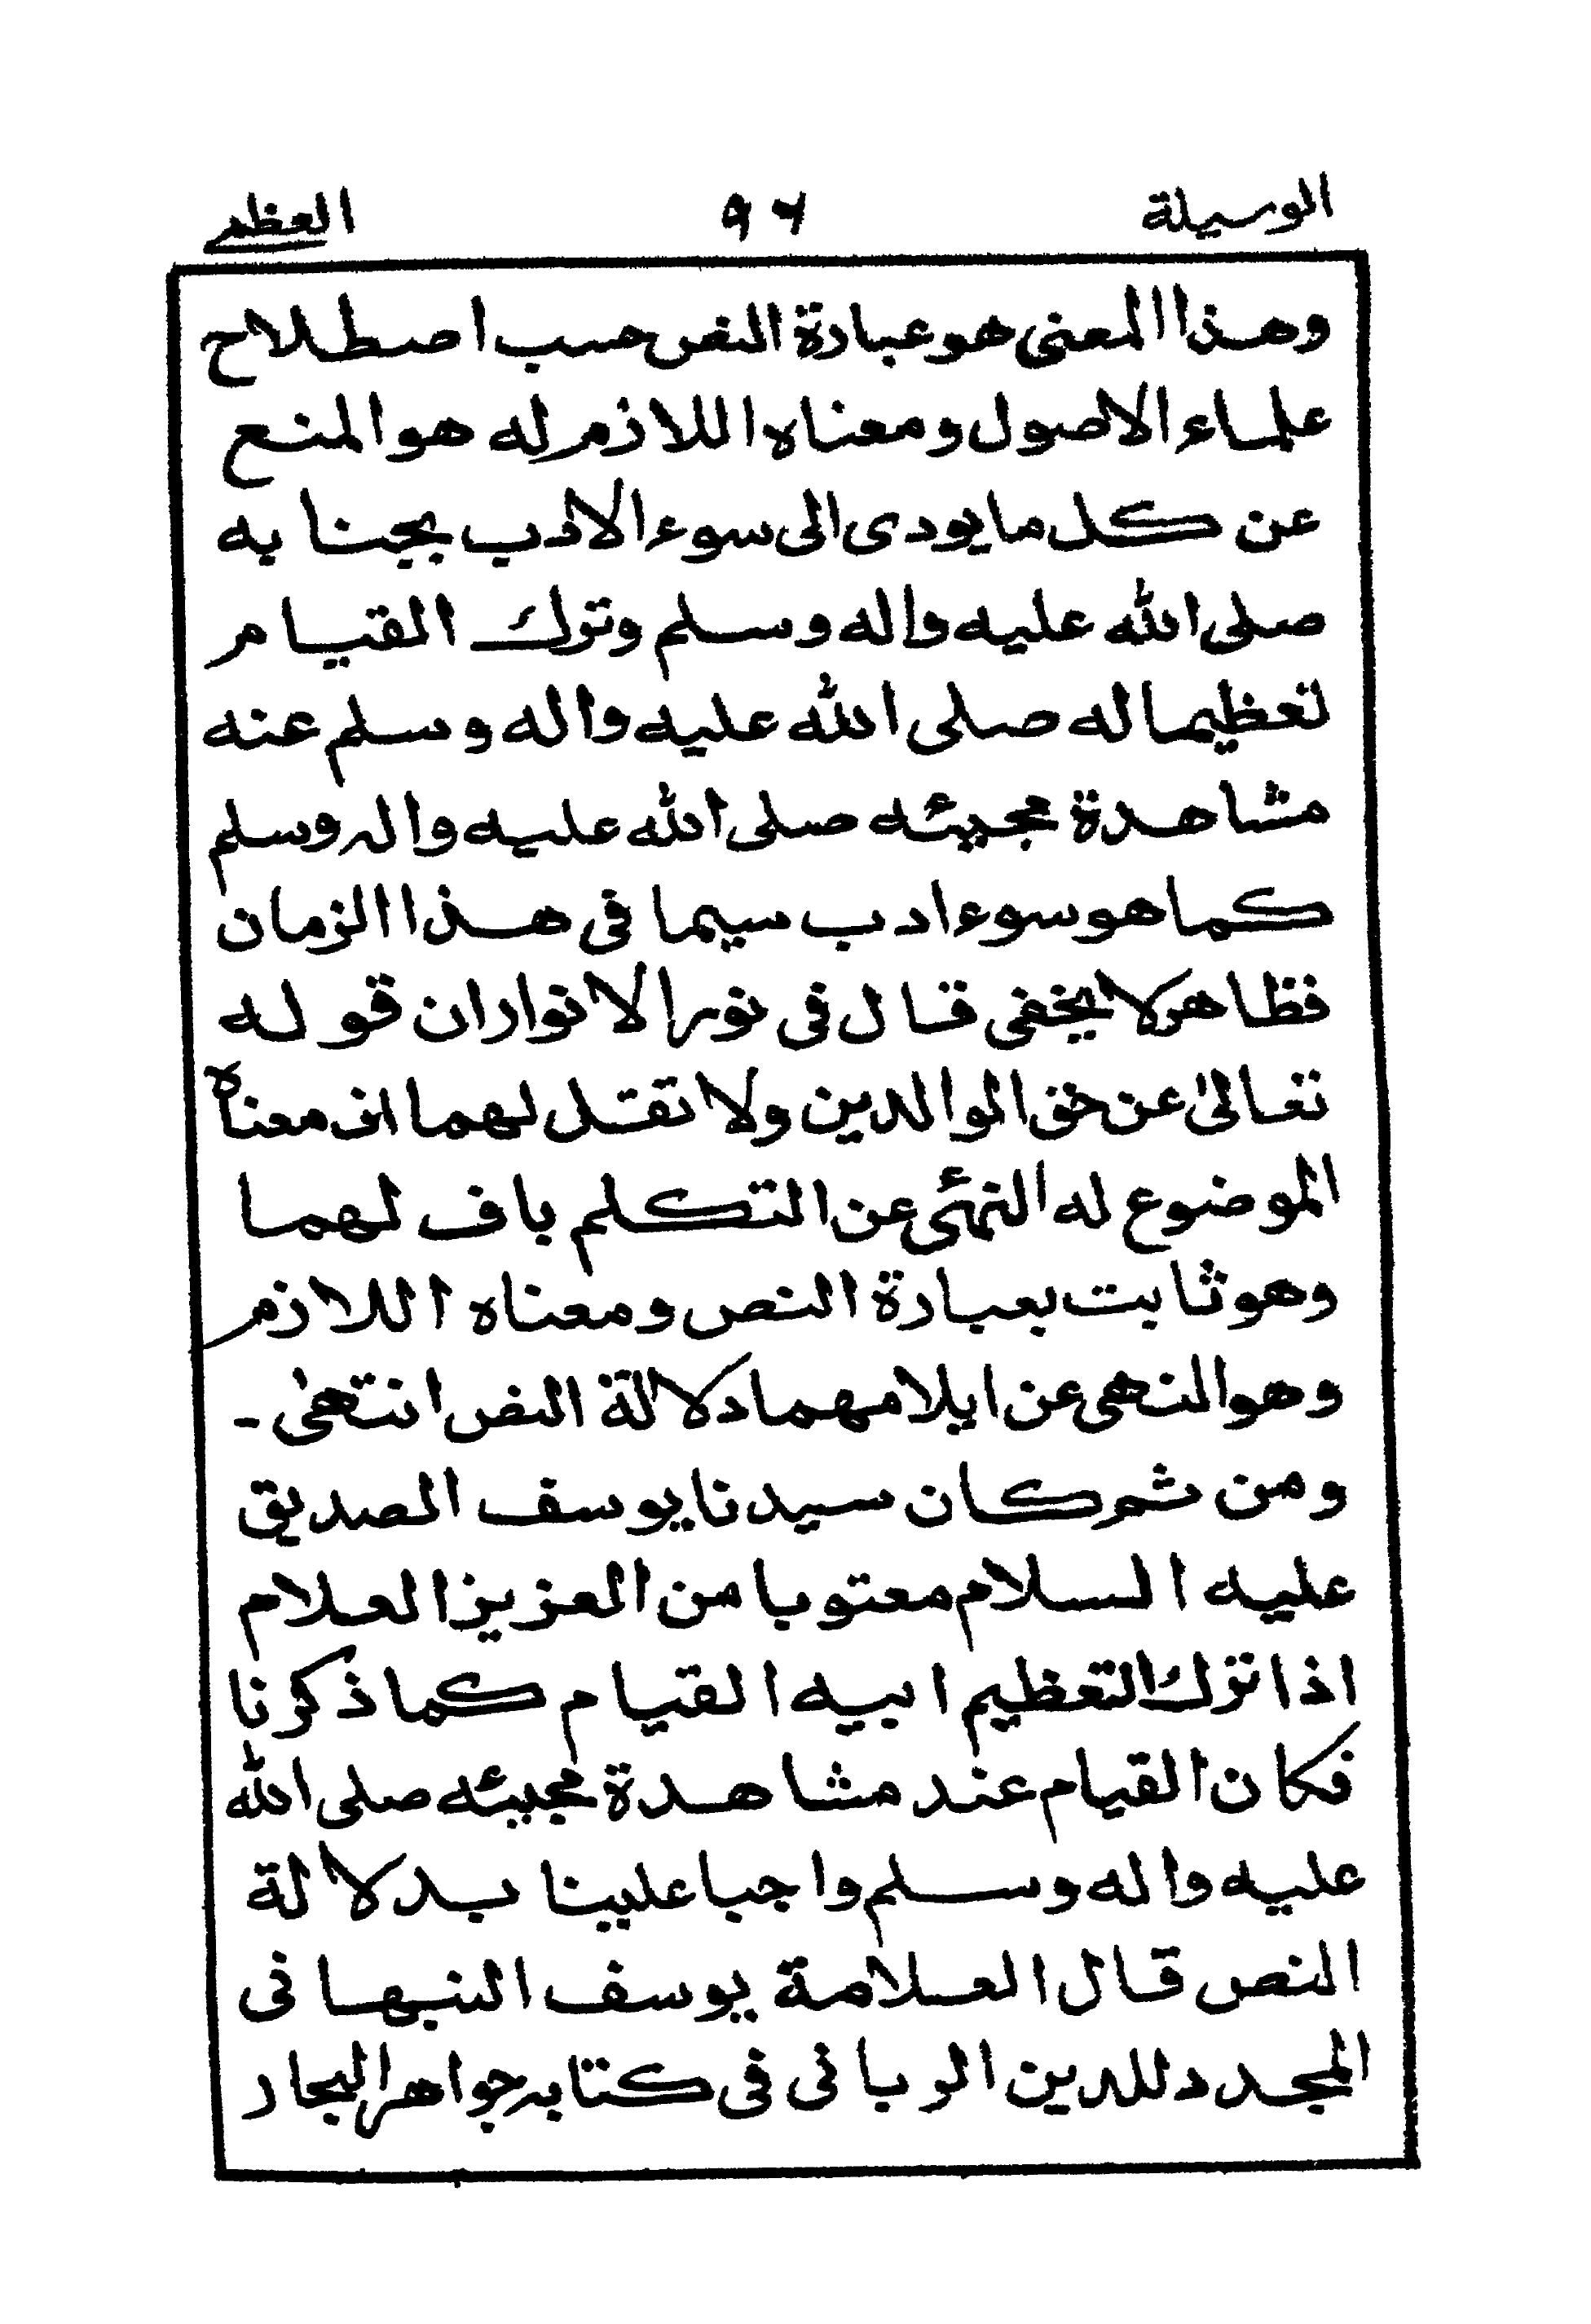 الوسيلة ٩٦ العظمى
وهذا المعنى هو عبادة النص حسب اصطلاح
علماء الاصول ومعناه اللازم له هو المنع
عن كل ما يودى الى سوء الادب بجنا به
صلى الله عليه واله وسلم وترك القيام
تعظيما له صلى الله عليه واله وسلم عنه
مشاهدة مجيئه صلى الله عليه واله وسلم
كما هو سوء ادب سيما فى هذا الزمان
فظاهر لا يخفى قال فى نور الانوار ان قوله
تعالىٰ عن حق الوالدين ولا تقل لهما اف معناه
الموضوع له النهى عن التكلم باف لهما
وهو ثابت بعبادة النص ومعناه اللازم
وهو النهى عن ايلامهما دلالة النص انتهىٰ -
ومن ثم كان سيدنا يوسف الصديق
عليه السلام معتوبا من العزيز العلام
اذا ترك التعظيم ابيه القيام كما ذكرنا
فكان القيام عند مشاهدة مجيئه صلى الله
عليه واله وسلم واجبا علينا بدلالة
النص قال العلامة يوسف النبهانى
المجدد للدين الربانى فى كتابه جواهر البحار